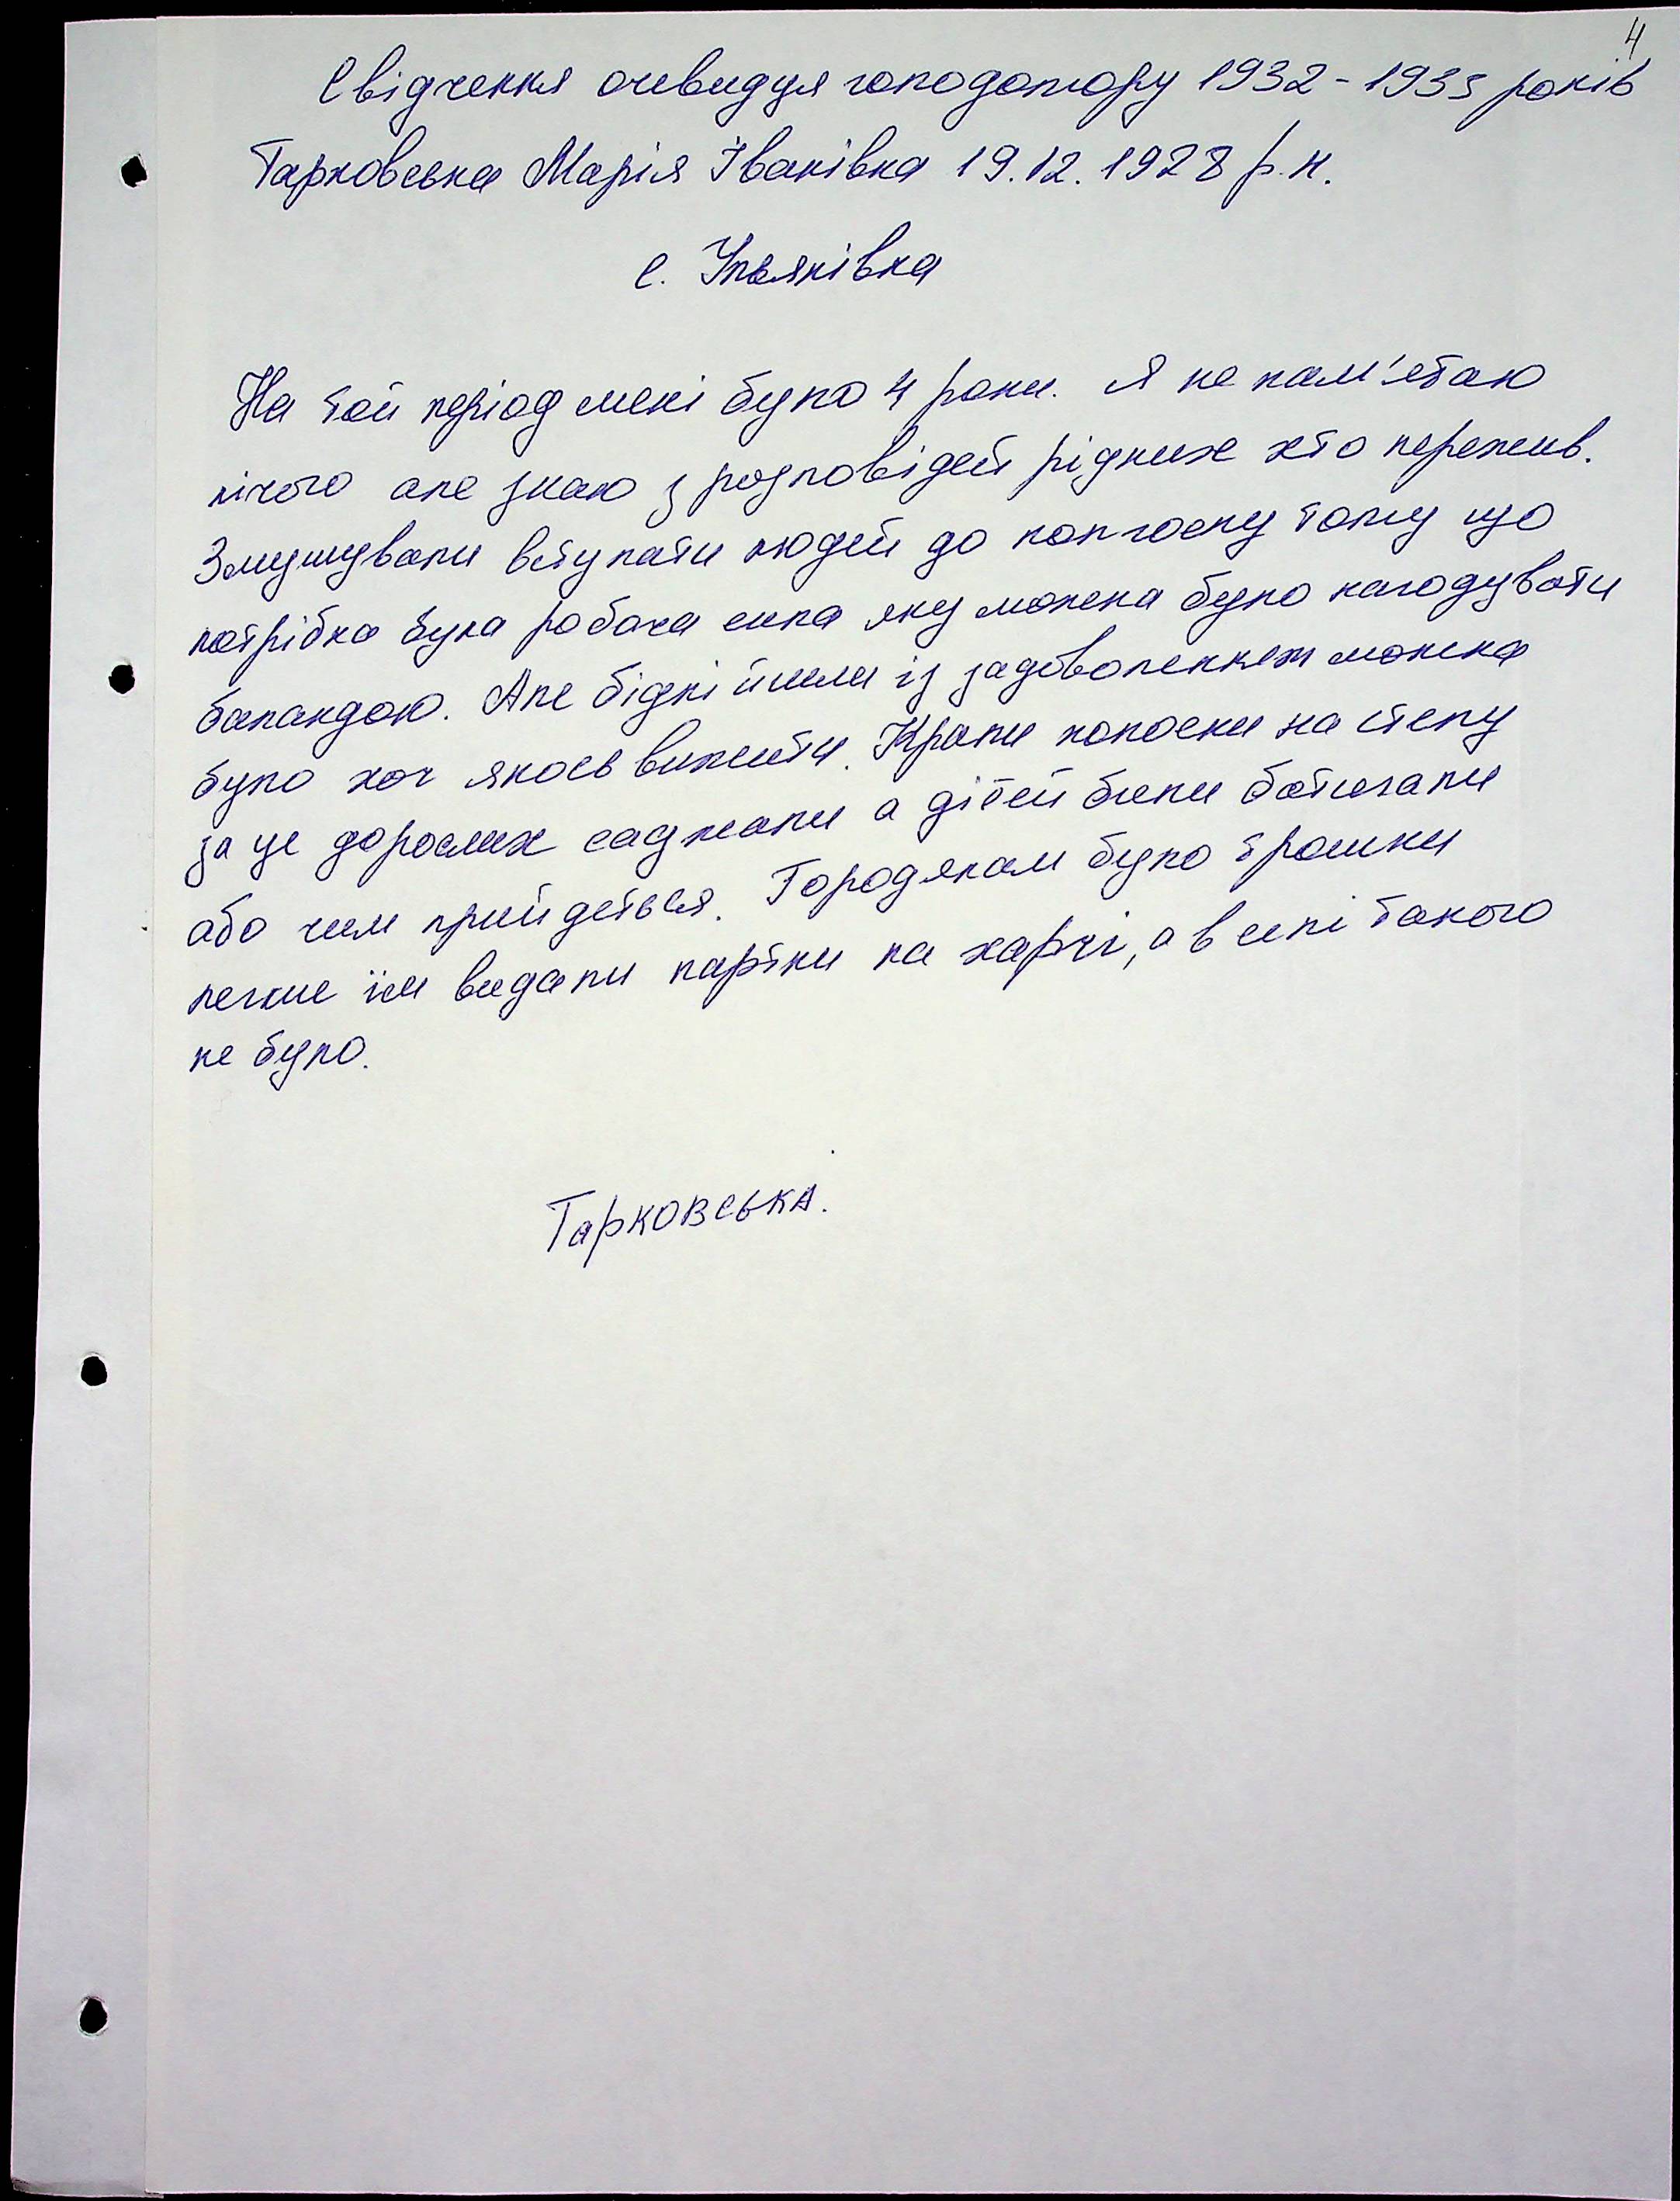 4
Свідчення очевидця голодомору 1932-1933 років
Тарковська Марія Іванівна 19.12.1928 р.н.
с. Ульянівка
На той період мені було 4 роки. Я не пам'ятаю
нічого але знаю з розповідей рідних хто пережив.
Змушували вступати людей до колгоспу тому що
потрібна була робоча сила яку можна було нагодувати
баландою. Але бідні йшли із задоволенням можна
було хоч якось вижити. Крали колоски на степу
за це дорослих саджали а дітей били батогами
або чим прийдеться. Городянам було трошки
легше їм видали картки на харчі, а в селі такого
не було.
Тарковська.